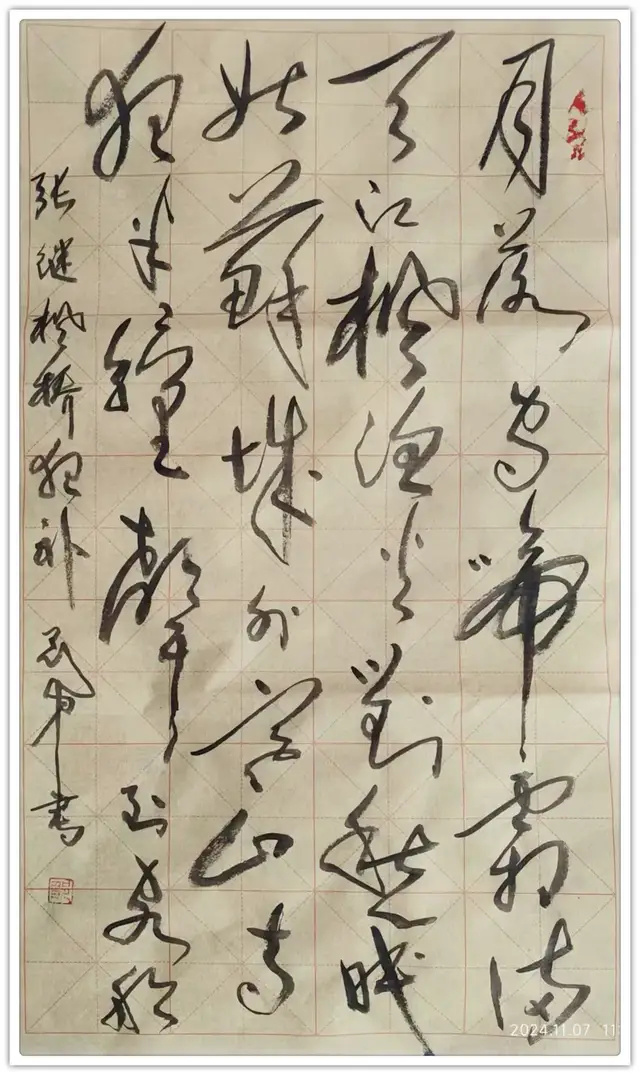 月落乌啼霜满
天江枫渔火對愁眠
姑蘇城外寒山寺
夜半鐘聲到客船
张继枫桥夜
書
2024.11.07 11